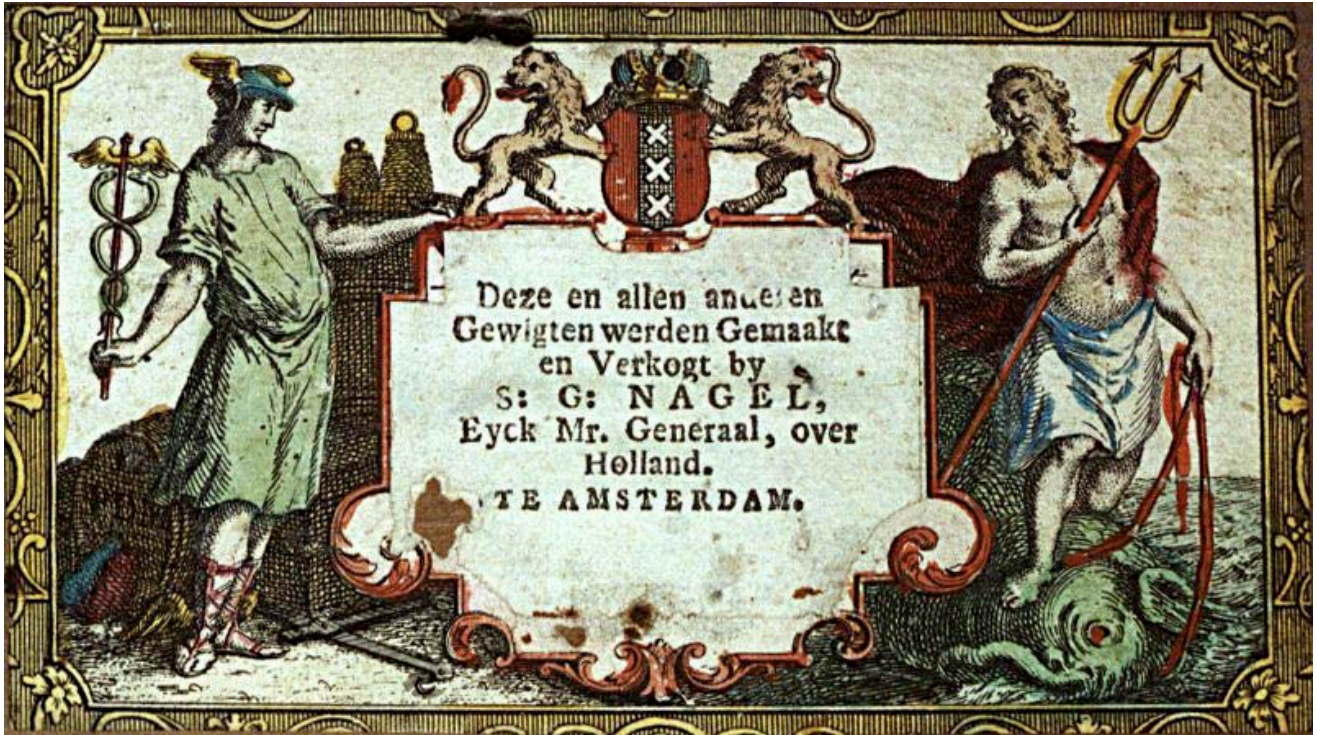 Deze en allen anderen
Gewigten werden Gemaakt
en Verkogt by
S: G: NAGEL,
Eyck Mr. Generaal, over
Holland.
TE AMSTERDAM.